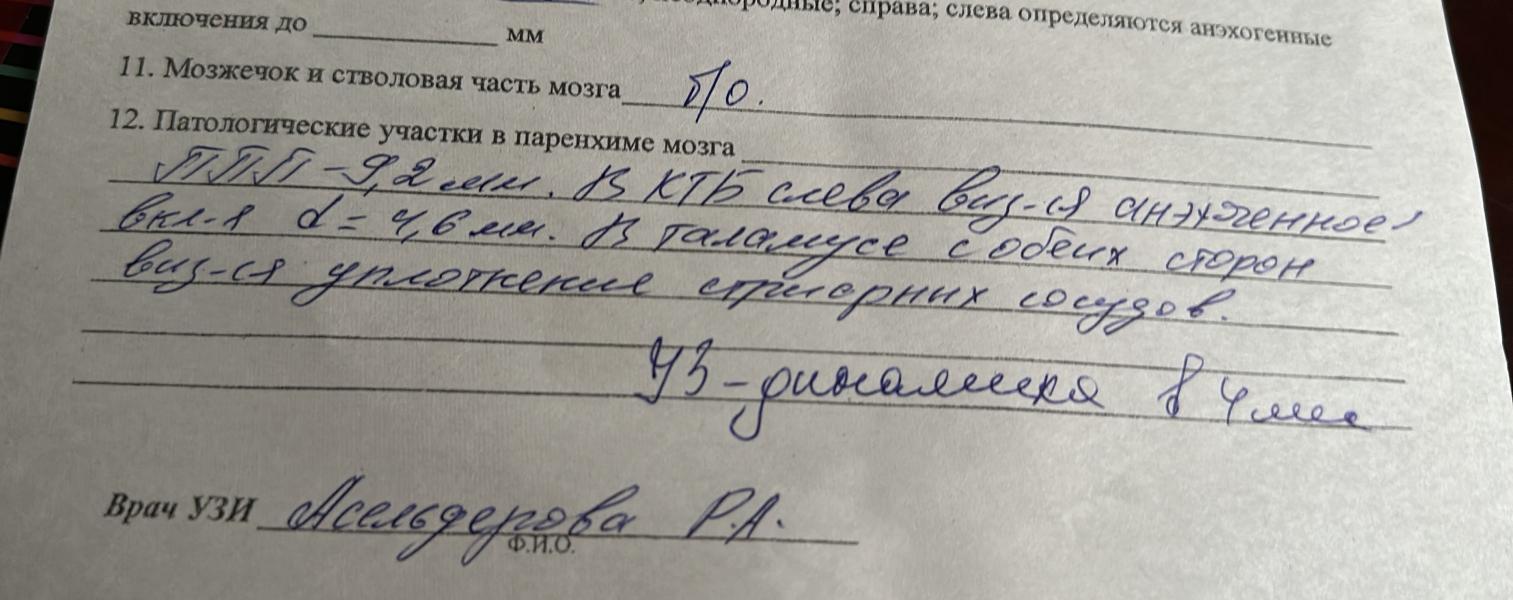 неоднородные; справа; слева определяются анэхогенные
включения до ____________ мм
11. Мозжечок и стволовая часть мозга б/о.
12. Патологические участки в паренхиме мозга
ППП-9,2 мм. В КТБ слева виз-ся анэхогенное
вкл-я d = 4,6 мм. В таламусе с обеих сторон
виз-ся уплотнение стриарных сосудов.
УЗ-динамика в 4 мес
Врач УЗИ Асельдерова Р.А.
Ф.И.О.